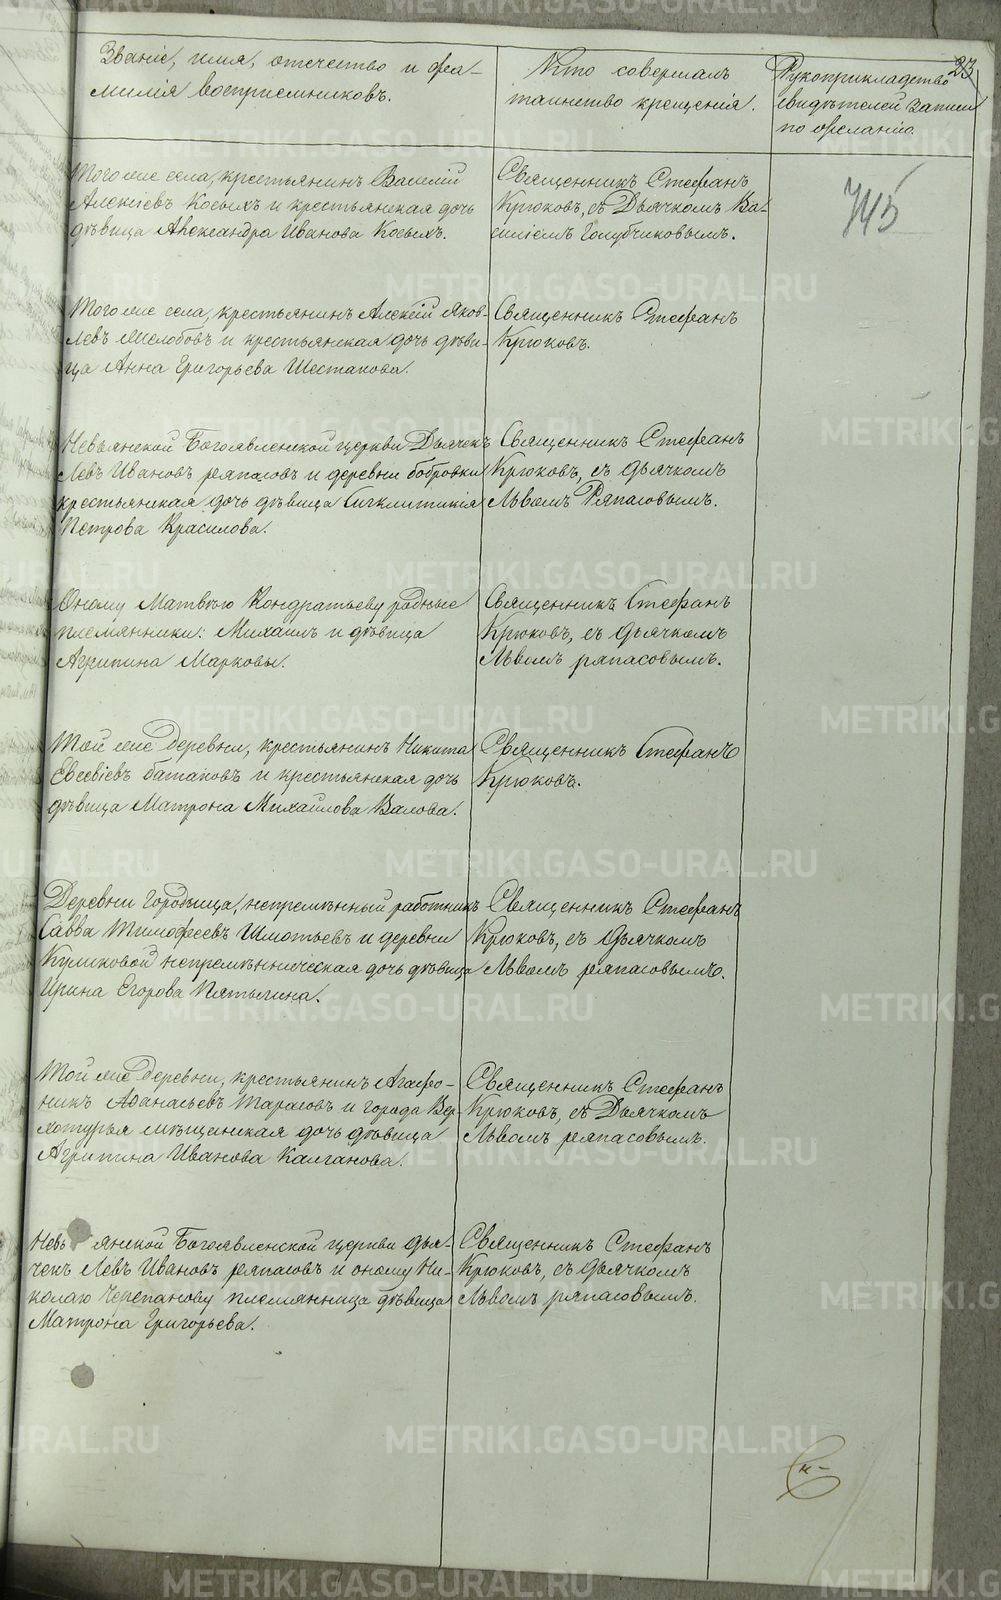 23
Званіе, имя, отечество и фа-
милія восприемниковъ.
Кто совершалъ
таинство крещенія.
Рукоприкладство
свидѣтелей записи
по желанію.
745
Того же села, крестьянинъ Василій
Алексѣевъ Косыхъ и крестьянская дочь
дѣвица Александра Иванова Косыхъ.
Священникъ Стефанъ
Крюковъ, съ Дьячкомъ Ва-
силіемъ Голубчиковымъ.
Того же села, крестьянинъ Алексѣй Яков-
левъ и крестьянская дочь дѣви-
ца Анна Григорьева Шестакова.
Священникъ Стефанъ
Крюковъ.
Невьянской Богоявленской церкви Дьячекъ
Левъ Ивановъ ряпасовъ и деревни бобровки
крестьянская дочь дѣвица Сигклитикія
Петрова Красилова.
Священникъ Стефанъ
Крюковъ, съ дьячкомъ
Львомъ Ряпасовымъ.
Оному Матвѣю Кондратьеву родные
племянники: Михаилъ и дѣвица
Агрипина Марковы.
Священникъ Стефанъ
Крюковъ, съ дьячкомъ
Львомъ ряпасовымъ.
Той же деревни, крестьянинъ Никита
Евсевіевъ батаковъ и крестьянская дочь
дѣвица Матрона Михаилова Валова.
Священникъ Стефанъ
Крюковъ.
Деревни Городища, непремѣнный работникъ
Савва Тимофеевъ Шмотьевъ и деревни
Куликовой непремѣнническая дочь дѣвица
Ирина Егорова Пятыгина.
Священникъ Стефанъ
Крюковъ, съ дьячкомъ
Львомъ ряпасовымъ.
Той же деревни, крестьянинъ Агафо-
никъ Афанасьевъ Тарасовъ и города Вер-
хотурья мѣщанская дочь дѣвица
Агрипина Иванова Калганова.
Священникъ Стефанъ
Крюковъ, съ Дьячкомъ
Львомъ ряпасовымъ.
Невьянской Богоявленской церкви дья-
чекъ Левъ Ивановъ ряпасовъ и оному Ни-
колаю Черепанову племянница дѣвица
Матрона Григорьева.
Священникъ Стефанъ
Крюковъ, съ дьячкомъ
Львомъ ряпасовымъ.
METRIKI.GASO-URAL.RU